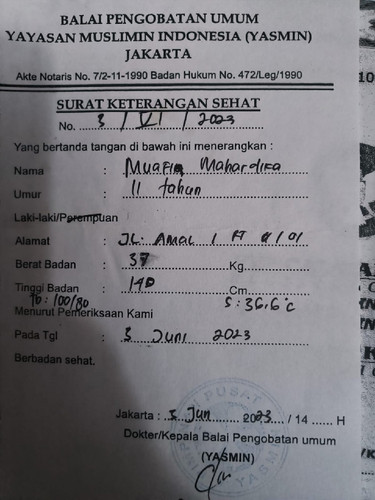 BALAI PENGOBATAN UMUM
YAYASAN MUSLIMIN INDONESIA (YASMIN)
JAKARTA
Akte Notaris No. 7/2-11-1990 Badan Hukum No. 472/Leg/1990
SURAT KETERANGAN SEHAT
No. 3 / VI / 2023
Yang bertanda tangan di bawah ini menerangkan :
Nama : Mahardika
Umur : 11 tahun
Laki-laki/Perempuan
Alamat : JL. AMAL 1
Berat Badan : 37 Kg.
Tinggi Badan : 140 Cm.
TD : 100/80 S : 36.6°c
Menurut Pemeriksaan Kami
Pada Tgl : 3 Juni 2023
Berbadan sehat.
Jakarta : 3 Jun 2023 / 14 ...... H
Dokter/Kepala Balai Pengobatan umum
(YASMIN)